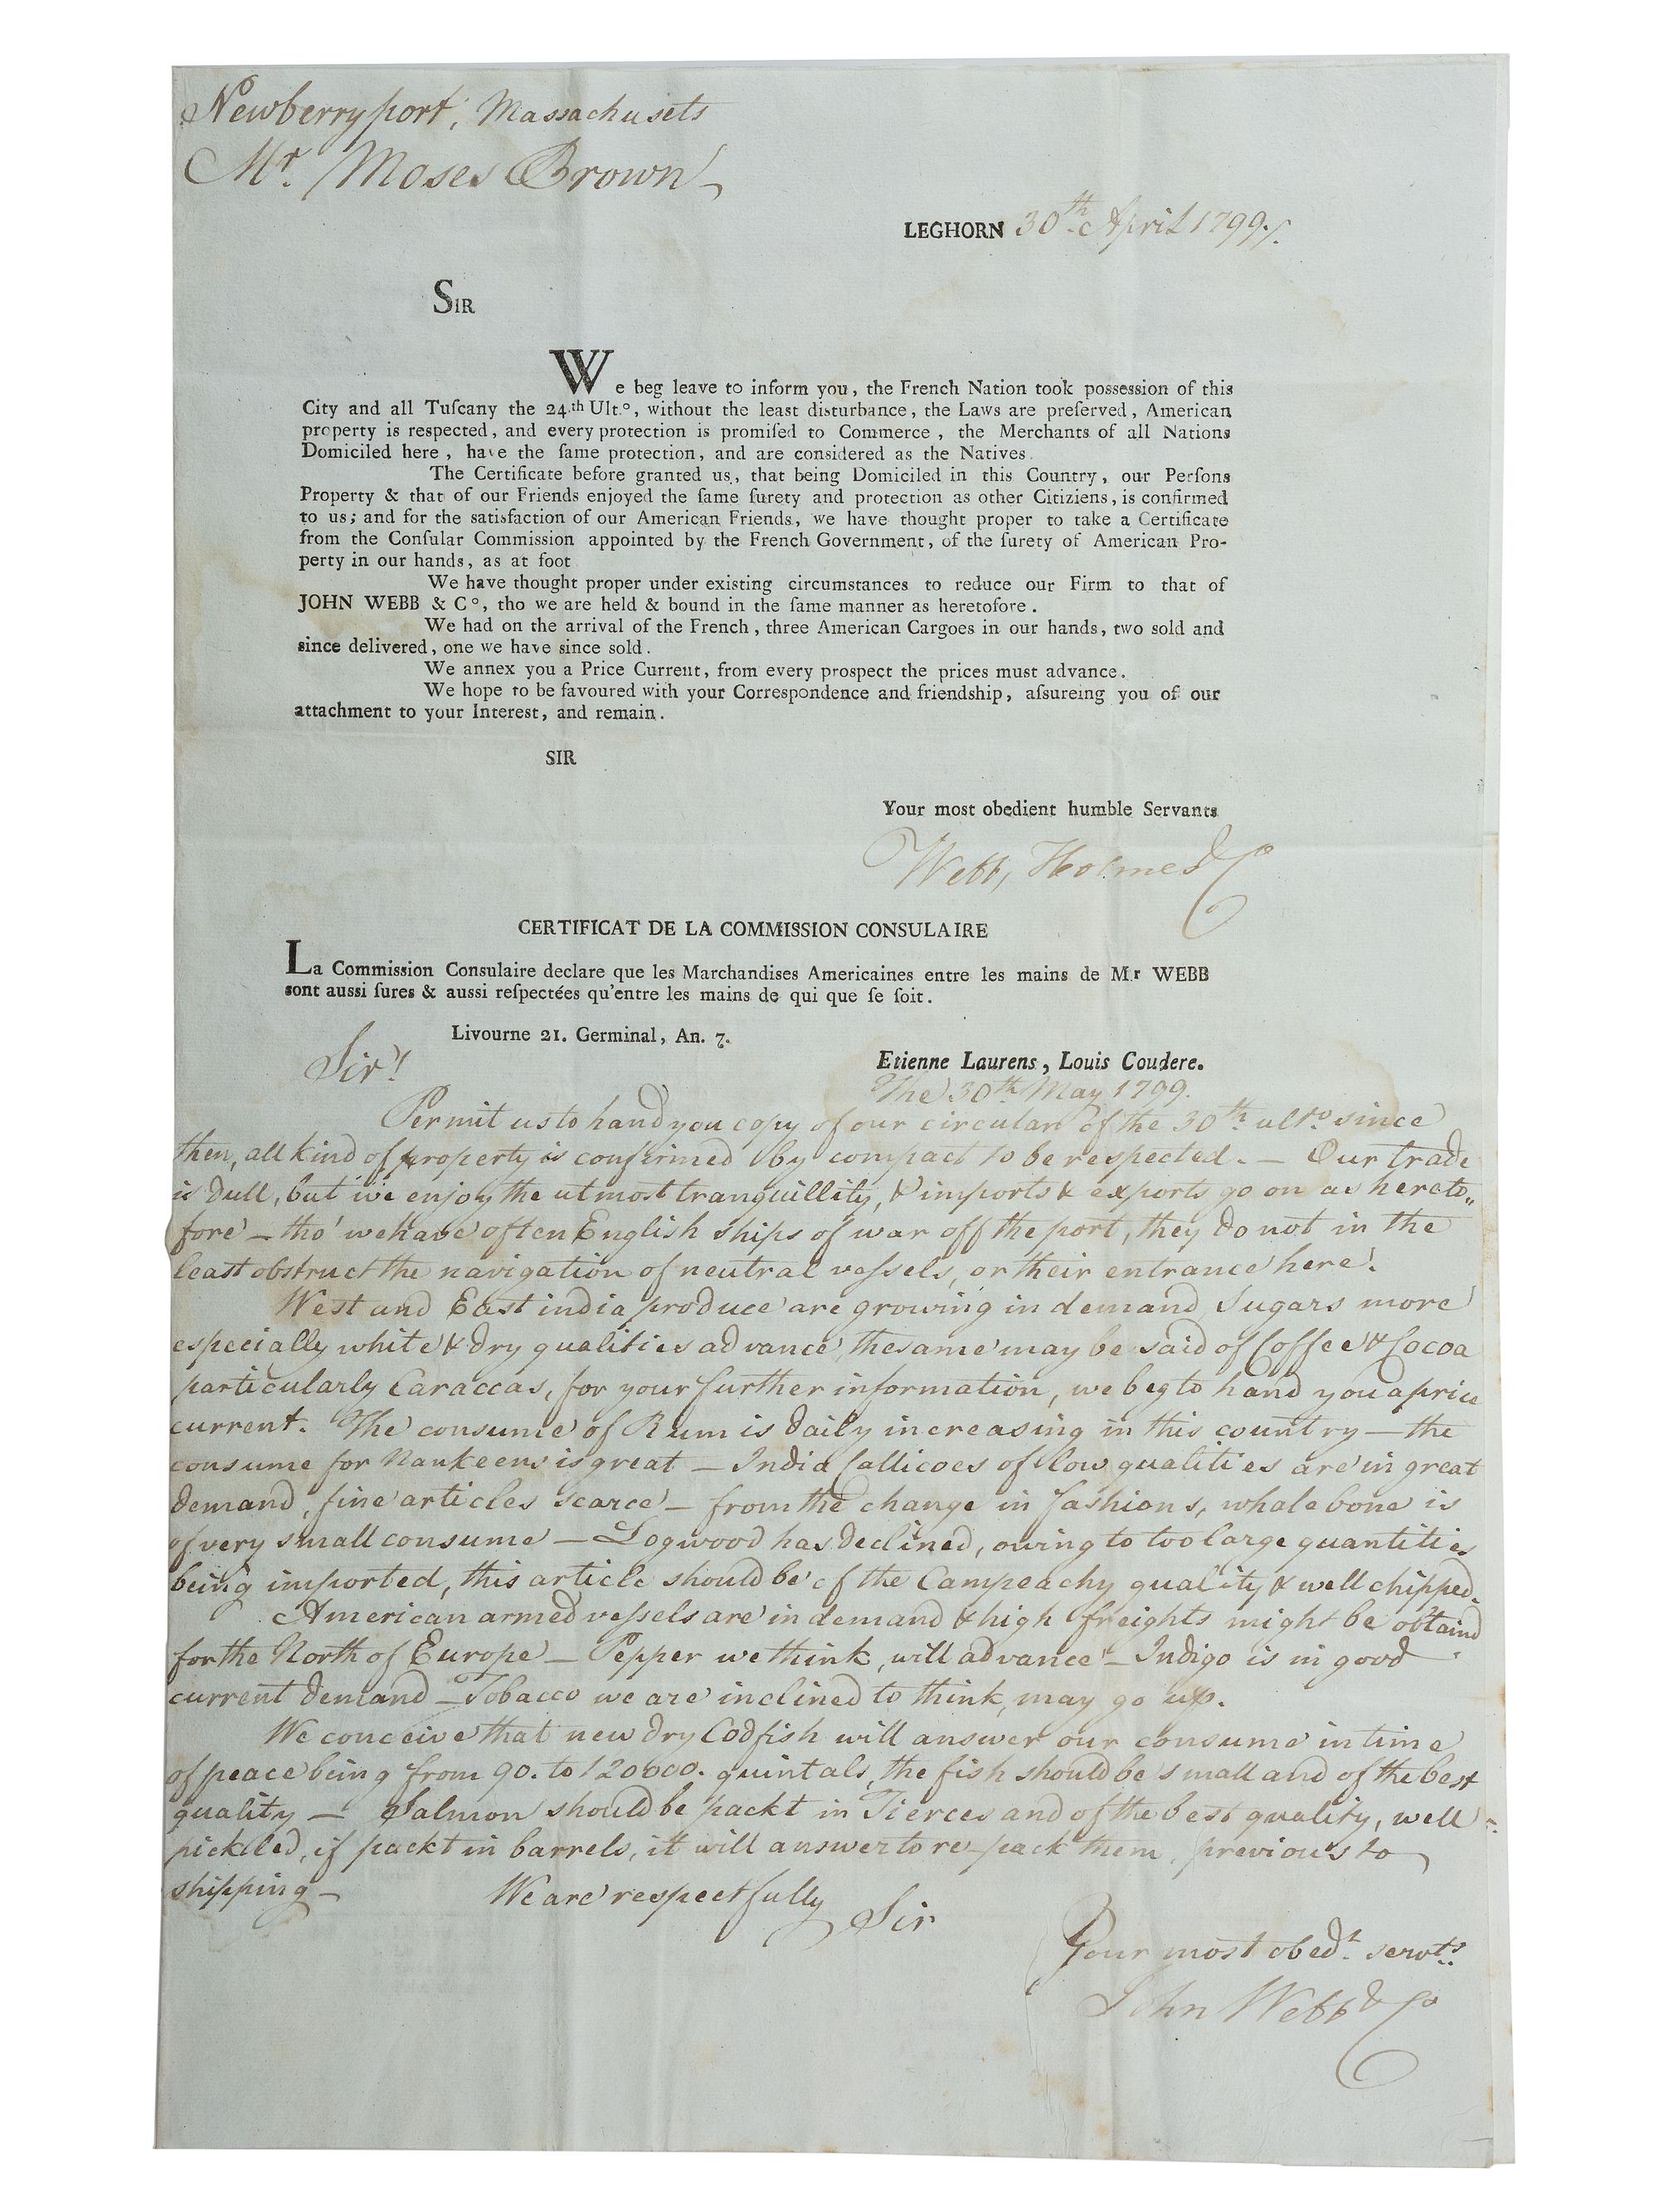 Newberryport, Massachusets
Mr. Moses Brown
LEGHORN 30th April 1799
SIR
We beg leave to inform you, the French Nation took possession of this
City and all Tuſcany the 24.th Ult.o, without the least disturbance, the Laws are preſerved, American
property is respected, and every protection is promiſed to Commerce, the Merchants of all Nations
Domiciled here, have the ſame protection, and are considered as the Natives.
The Certificate before granted us, that being Domiciled in this Country, our Perſons
Property & that of our Friends enjoyed the ſame ſurety and protection as other Citiziens, is confirmed
to us; and for the satisfaction of our American Friends, we have thought proper to take a Certificate
from the Conſular Commission appointed by the French Government, of the ſurety of American Pro-
perty in our hands, as at foot
We have thought proper under existing circumstances to reduce our Firm to that of
JOHN WEBB & Co, tho we are held & bound in the ſame manner as heretofore.
We had on the arrival of the French, three American Cargoes in our hands, two sold and
since delivered, one we have since sold.
We annex you a Price Current, from every prospect the prices must advance.
We hope to be favoured with your Correspondence and friendship, aſsureing you of our
attachment to your Interest, and remain.
SIR
Your most obedient humble Servants
Webb, Holmes & Co
CERTIFICAT DE LA COMMISSION CONSULAIRE
La Commission Consulaire declare que les Marchandises Americaines entre les mains de M.r WEBB
sont aussi ſures & aussi reſpectées qu'entre les mains de qui que ſe ſoit.
Livourne 21. Germinal, An. 7.
Etienne Laurens, Louis Coudere.
Sir!
The 30th May 1799.
Permit us to hand you copy of our circular of the 30th ulto since
then, all kind of property is confirmed by compact to be respected. — Our trade
is dull, but we enjoy the utmost tranquillity, & imports & exports go on as hereto„
fore — tho' we have often English ships of war off the port, they do not in the
least obstruct the navigation of neutral veſsels, or their entrance here.
West and East india produce are growing in demand, Sugars more
especially white & dry qualities advance, the same may be said of Coffee & Cocoa
particularly Caraccas, for your further information, we beg to hand you a price
current. The consume of Rum is daily increasing in this country — the
consume for Nankeens is great — India Callicoes of low qualities are in great
demand, fine articles scarce — from the change in fashions, whale bone is
of very small consume — Logwood has declined, owing to too large quantities
being imported, this article should be of the Campeachy quality & well chipped.
American armed veſsels are in demand & high freights might be obtaind
for the North of Europe — Pepper we think, will advance — Indigo is in good
current demand — Tobacco we are inclined to think, may go up.
We conceive that new dry Codfish will answer our consume in time
of peace being from 90. to 120000. quintals, the fish should be small and of the best
quality — Salmon should be packt in Tierces and of the best quality, well
pickled, if packt in barrels, it will answer to re-pack them, previous to
shipping —
We are respectfully
Sir
Your most obedt. servts.
John Webb & Co